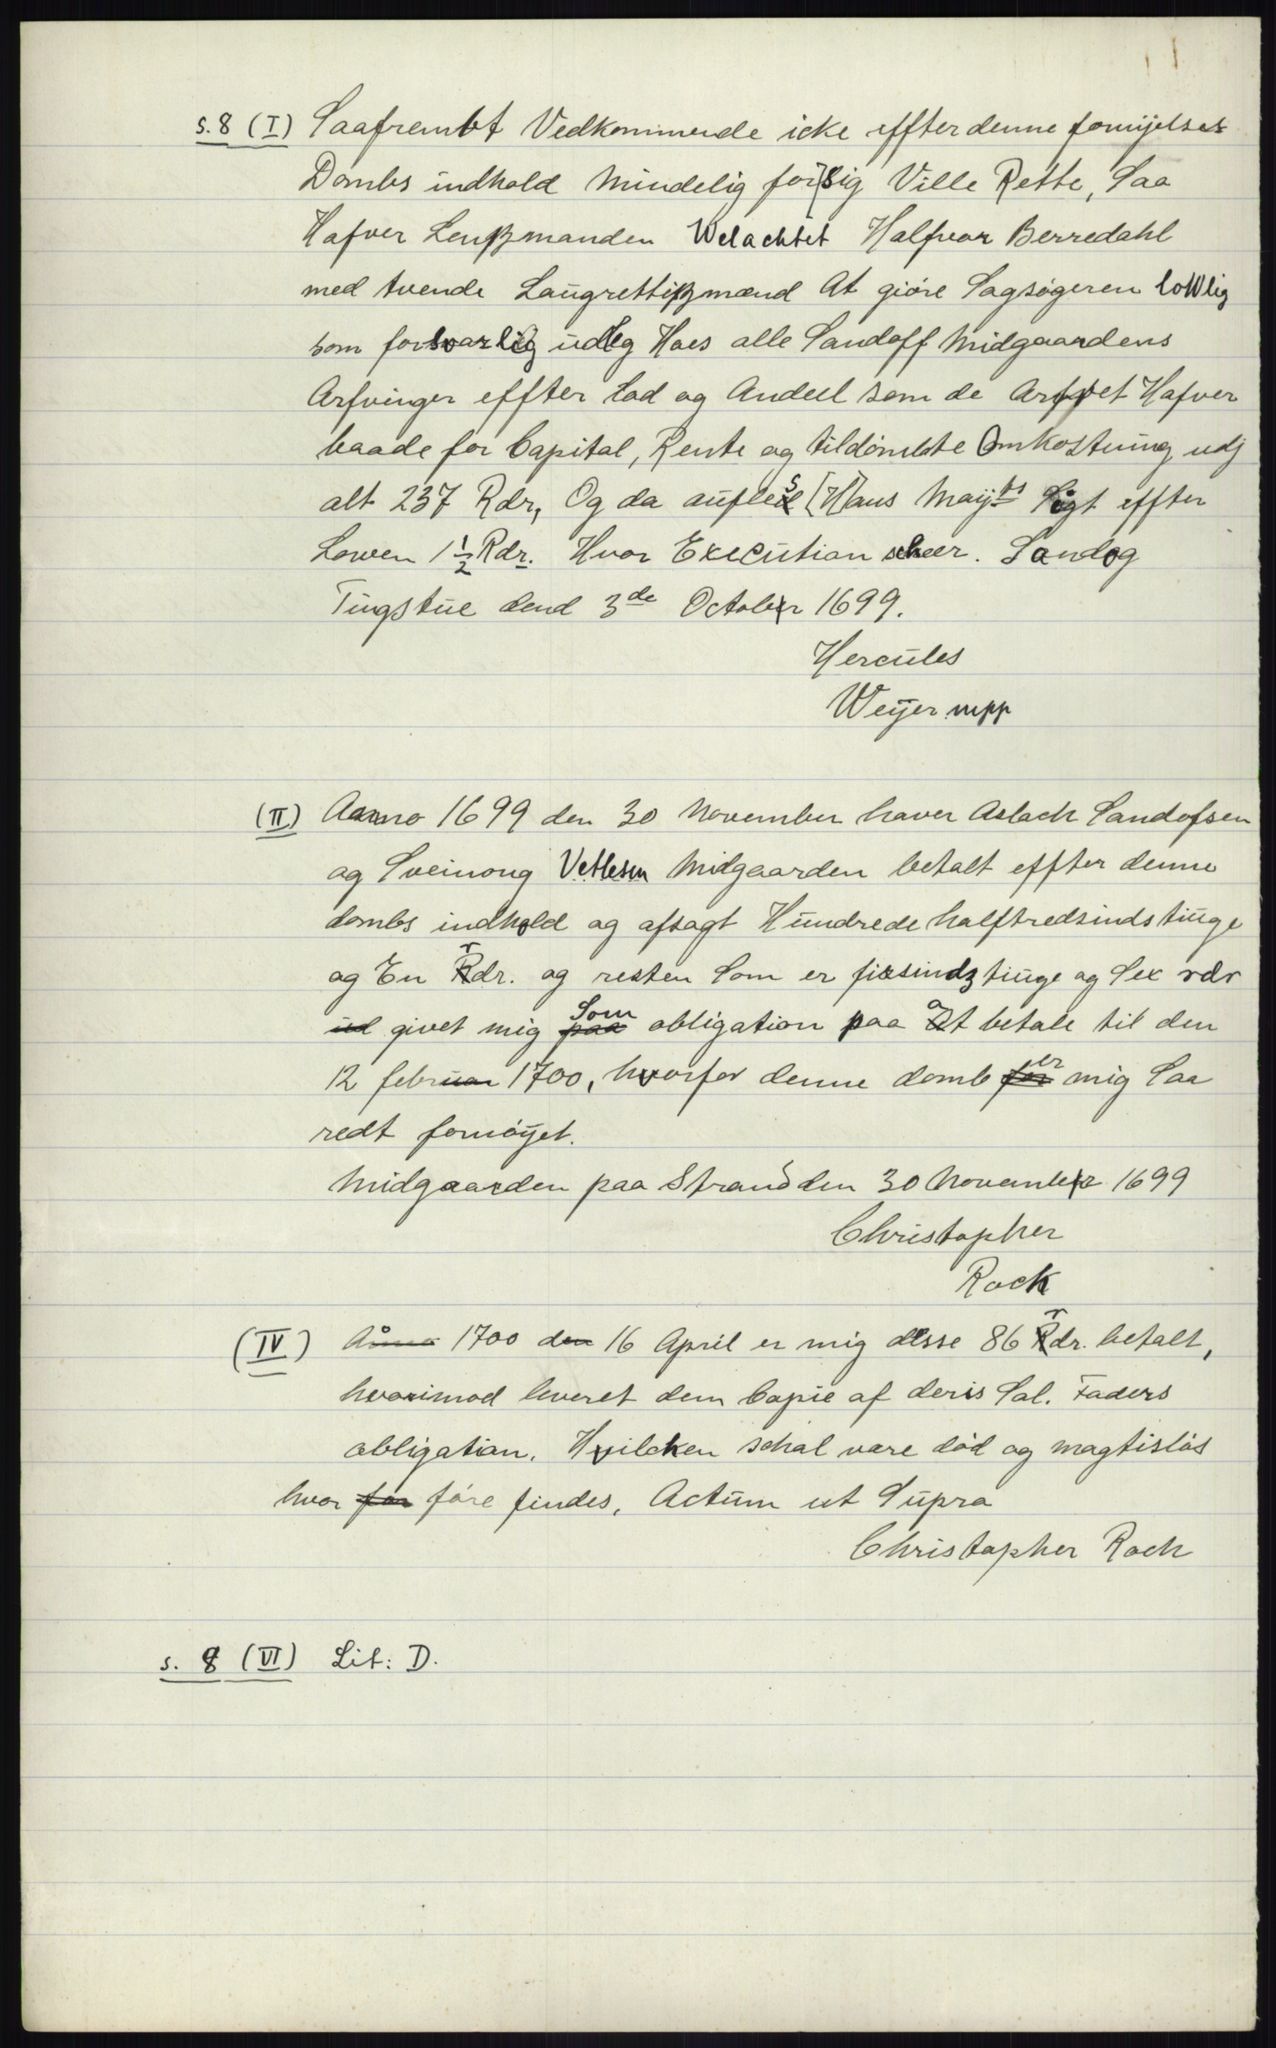 s. 8 (I) Saafrembt Vedkommende icke effter denne fornijelses
Dombs indhold Mindelig for sig Ville Rette, Saa
Hafver Lenßmanden Welachtet Halfvor Berredahl
med tvende Laugrettißmænd At giöre Sagsögeren loWlig
som forsvarlig udleg Hoes alle Sandoff Midgaardens
Arfvinger effter Lod og Andeel som de Arfvet Hafver
baade for Capital, Rente og tildömbte Omkostning udj
alt 237 Rdr, Og da [H]ans Maijts Sigt effter
Lowen 1 1/2 Rdr. Hvor Execution scheer. Landog
Tingstue dend 3de October 1699.
Hercules
Weijer mpp
(II) Anno 1699 den 30 November haver Aslach Sandofsen
og Sveinong Vetlesen Midgaarden betalt effter denne
dombs indhold og afsagt Hundrede halftredsindstiuge
og En rdr. og resten Som er firsindztiuge og Sex rdr
ud givet mig paa Som obligation paa at betale til den
12 februar 1700, hvorfor denne domb for er mig Saa
redt fornöijet.
Midgaarden paa Strand den 30 November 1699
Christopher
Rock
(IV) Åo 1700 den 16 April er mig disse 86 rdr. betalt,
hvorimod leveret dem Copie af deris Sal. Faders
obligation. Hvilcken schal være död og magtislös
hvor for före findes, Actum ut Supra
Christopher Roch
s. 8 (VI) Lit: D.